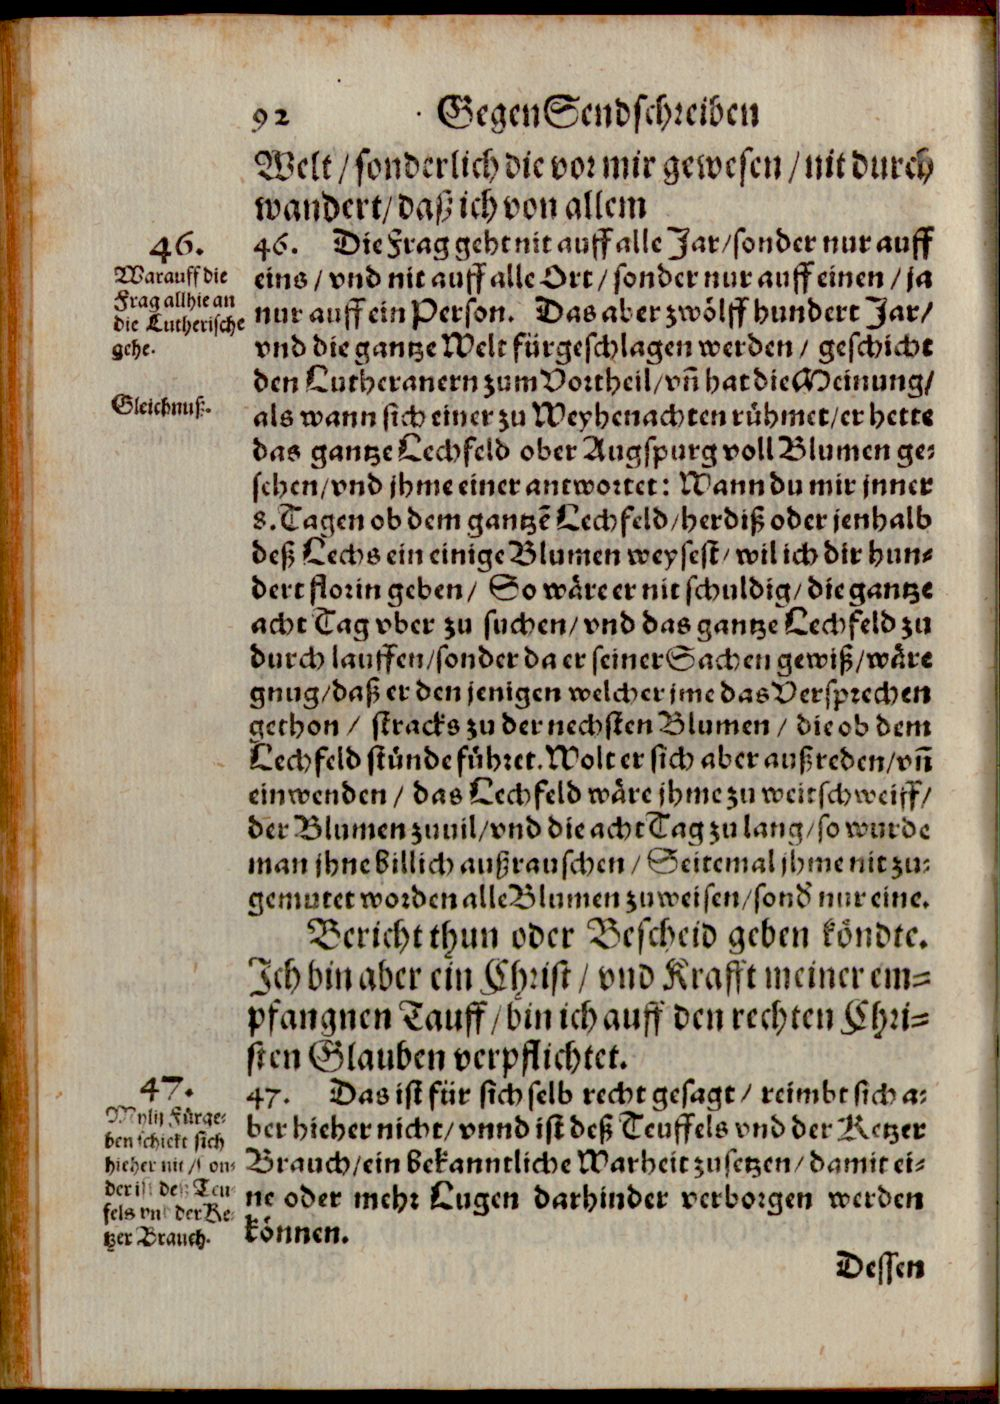 92 GegenSendschreiben
Welt / sonderlich die vor mir gewesen / nit durch
wandert / daß ich von allem
46.
Warauff die
Frag allhie an
die Lutherische
gehe.
46. Die Frag geht nit auff alle Jar / sonder nur auff
eins / vnd nit auff alle Ort / sonder nur auff einen / ja
nur auff ein Person. Das aber zwölff hundert Jar /
vnd die gantze Welt fürgeschlagen werden / geschicht
den Lutheranern zum Vortheil / vñ hat die Meinung /
Gleichnuß.
als wann sich einer zu Weyhenachten rühmet / er hette
das gantze Lechfeld ober Augspurg voll Blumen ge-
sehen / vnd jhme einer antwortet: Wann du mir jnner
8. Tagen ob dem gantzē Lechfeld / herdiß oder jenhalb
deß Lechs ein einige Blumen weysest / wil ich dir hun-
dert florin geben / So wäre er nit schuldig / die gantze
acht Tag vber zu suchen / vnd das gantze Lechfeld zu
durch lauffen / sonder da er seiner Sachen gewiß / wäre
gnug / daß er den jenigen welcher jme das Versprechen
gethon / stracks zu der nechsten Blumen / die ob dem
Lechfeld stünde führet. Wolt er sich aber außreden / vñ
einwenden / das Lechfeld wäre jhme zu weitschweiff /
der Blumen zuuil / vnd die acht Tag zu lang / so wurde
man jhne billich außrauschen / Seitemal jhme nit zu-
gemutet worden alle Blumen zuweisen / sond' nur eine.
Bericht thun oder Bescheid geben köndte.
Ich bin aber ein Christ / vnd Krafft meiner em-
pfangnen Tauff / bin ich auff den rechten Chri-
sten Glauben verpflichtet.
47.
Mylij Fürge-
ben schickt sich
hieher nit / son-
der ist deß Teu
fels vnd der Ke-
tzer Brauch.
47. Das ist für sich selb recht gesagt / reimbt sich a-
ber hieher nicht / vnnd ist deß Teuffels vnd der Ketzer
Brauch / ein bekanntliche Warheit zusetzen / damit ei-
ne oder mehr Lugen darhinder verborgen werden
können.
Dessen